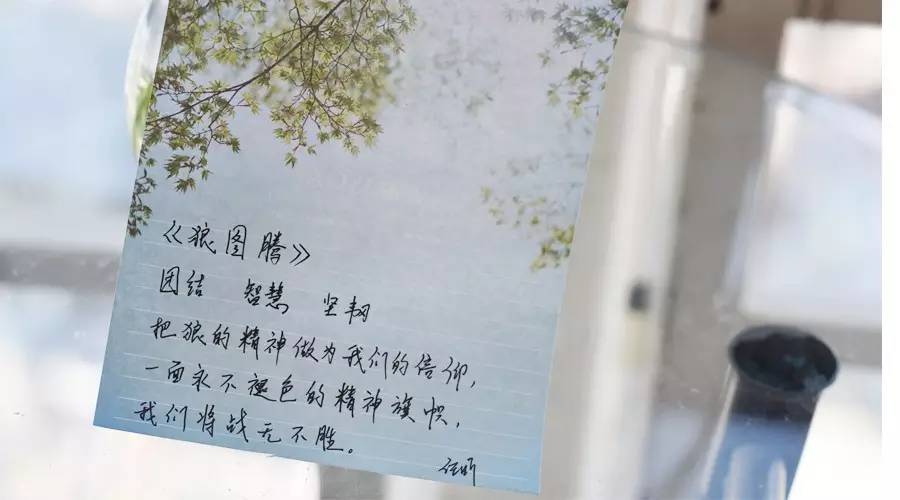 《狼图腾》
团结 智慧 坚韧
把狼的精神做为我们的信仰,
一面永不褪色的精神旗帜,
我们将战无不胜。